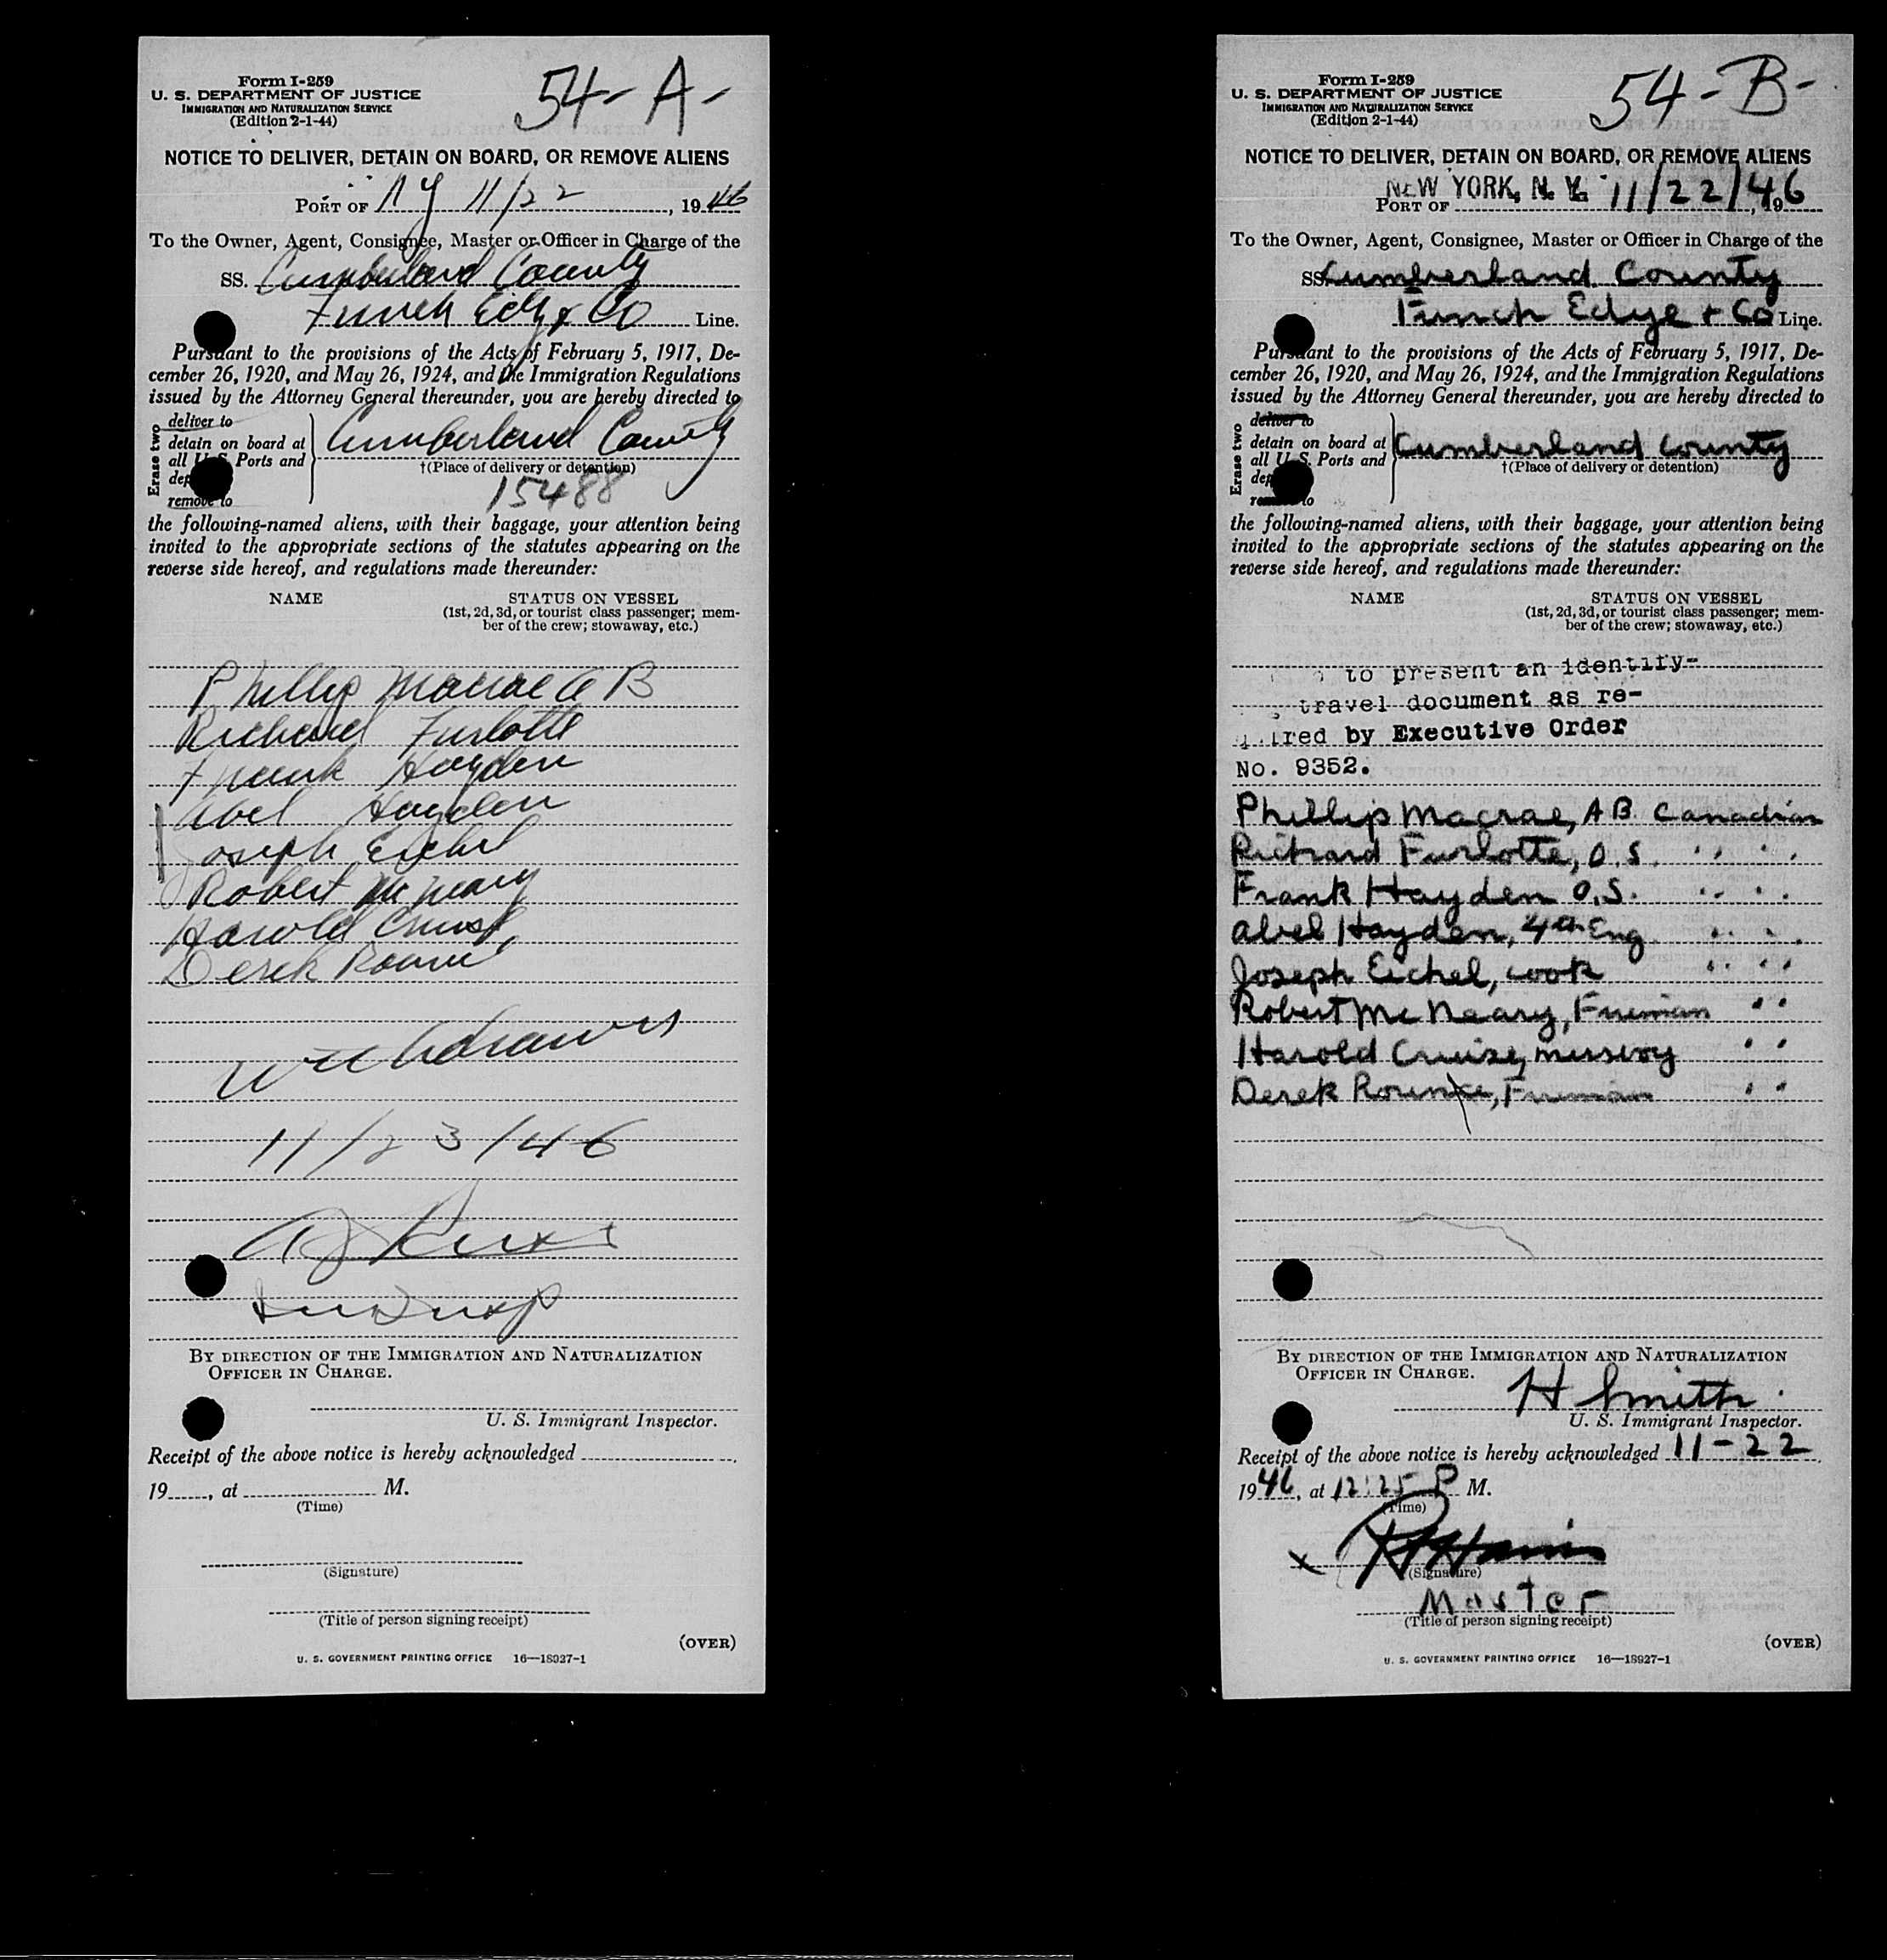 Form I-259
U. S. DEPARTMENT OF JUSTICE
IMMIGRATION AND NATURALIZATION SERVICE
(Edition 2-1-44)
54-A-
NOTICE TO DELIVER, DETAIN ON BOARD, OR REMOVE ALIENS
PORT OF NY 11/22, 1946
To the Owner, Agent, Consignee, Master or Officer in Charge of the
SS. Cumberland County
Funch Edye & Co Line.
Pursuant to the provisions of the Acts of February 5, 1917, De-
cember 26, 1920, and May 26, 1924, and the Immigration Regulations
issued by the Attorney General thereunder, you are hereby directed to
Erase two
deliver to
detain on board at
all U. S. Ports and
dep
remove to
Cumberland County
†(Place of delivery or detention)
15488
the following-named aliens, with their baggage, your attention being
invited to the appropriate sections of the statutes appearing on the
reverse side hereof, and regulations made thereunder:
NAME STATUS ON VESSEL
(1st, 2d, 3d, or tourist class passenger; mem-
ber of the crew; stowaway, etc.)
Phillip Macrae AB
Richard Furlotte
Frank Hayden
Abel Hayden
Joseph Eichel
Robert McNeary
Harold Cruise
Derek
Withdrawn
11/23/46
BY DIRECTION OF THE IMMIGRATION AND NATURALIZATION
OFFICER IN CHARGE.
U. S. Immigrant Inspector.
Receipt of the above notice is hereby acknowledged
19, at M.
(Time)
(Signature)
(Title of person signing receipt)
(OVER)
U. S. GOVERNMENT PRINTING OFFICE 16—18927-1
Form I-259
U. S. DEPARTMENT OF JUSTICE
IMMIGRATION AND NATURALIZATION SERVICE
(Edition 2-1-44)
54-B-
NOTICE TO DELIVER, DETAIN ON BOARD, OR REMOVE ALIENS
PORT OF NEW YORK, N. Y. 11/22/46, 19
To the Owner, Agent, Consignee, Master or Officer in Charge of the
SS. Cumberland County
Funch Edye + Co Line.
Pursuant to the provisions of the Acts of February 5, 1917, De-
cember 26, 1920, and May 26, 1924, and the Immigration Regulations
issued by the Attorney General thereunder, you are hereby directed to
Erase two
deliver to
detain on board at
all U. S. Ports and
dep
remove to
Cumberland County
†(Place of delivery or detention)
the following-named aliens, with their baggage, your attention being
invited to the appropriate sections of the statutes appearing on the
reverse side hereof, and regulations made thereunder:
NAME STATUS ON VESSEL
(1st, 2d, 3d, or tourist class passenger; mem-
ber of the crew; stowaway, etc.)
to present an identify-
travel document as re-
quired by Executive Order
No. 9352.
Phillip Macrae, AB Canadian
Richard Furlotte, O.S. " "
Frank Hayden O.S. " "
Abel Hayden, 4th Eng " "
Joseph Eichel, cook " "
Robert McNeary, Fireman " "
Harold Cruise, messboy " "
Derek, Fireman " "
BY DIRECTION OF THE IMMIGRATION AND NATURALIZATION
OFFICER IN CHARGE.
H Smith
U. S. Immigrant Inspector.
Receipt of the above notice is hereby acknowledged 11-22
1946, at 12:25 P M.
(Time)
x
(Signature)
Master
(Title of person signing receipt)
(OVER)
U. S. GOVERNMENT PRINTING OFFICE 16—18927-1